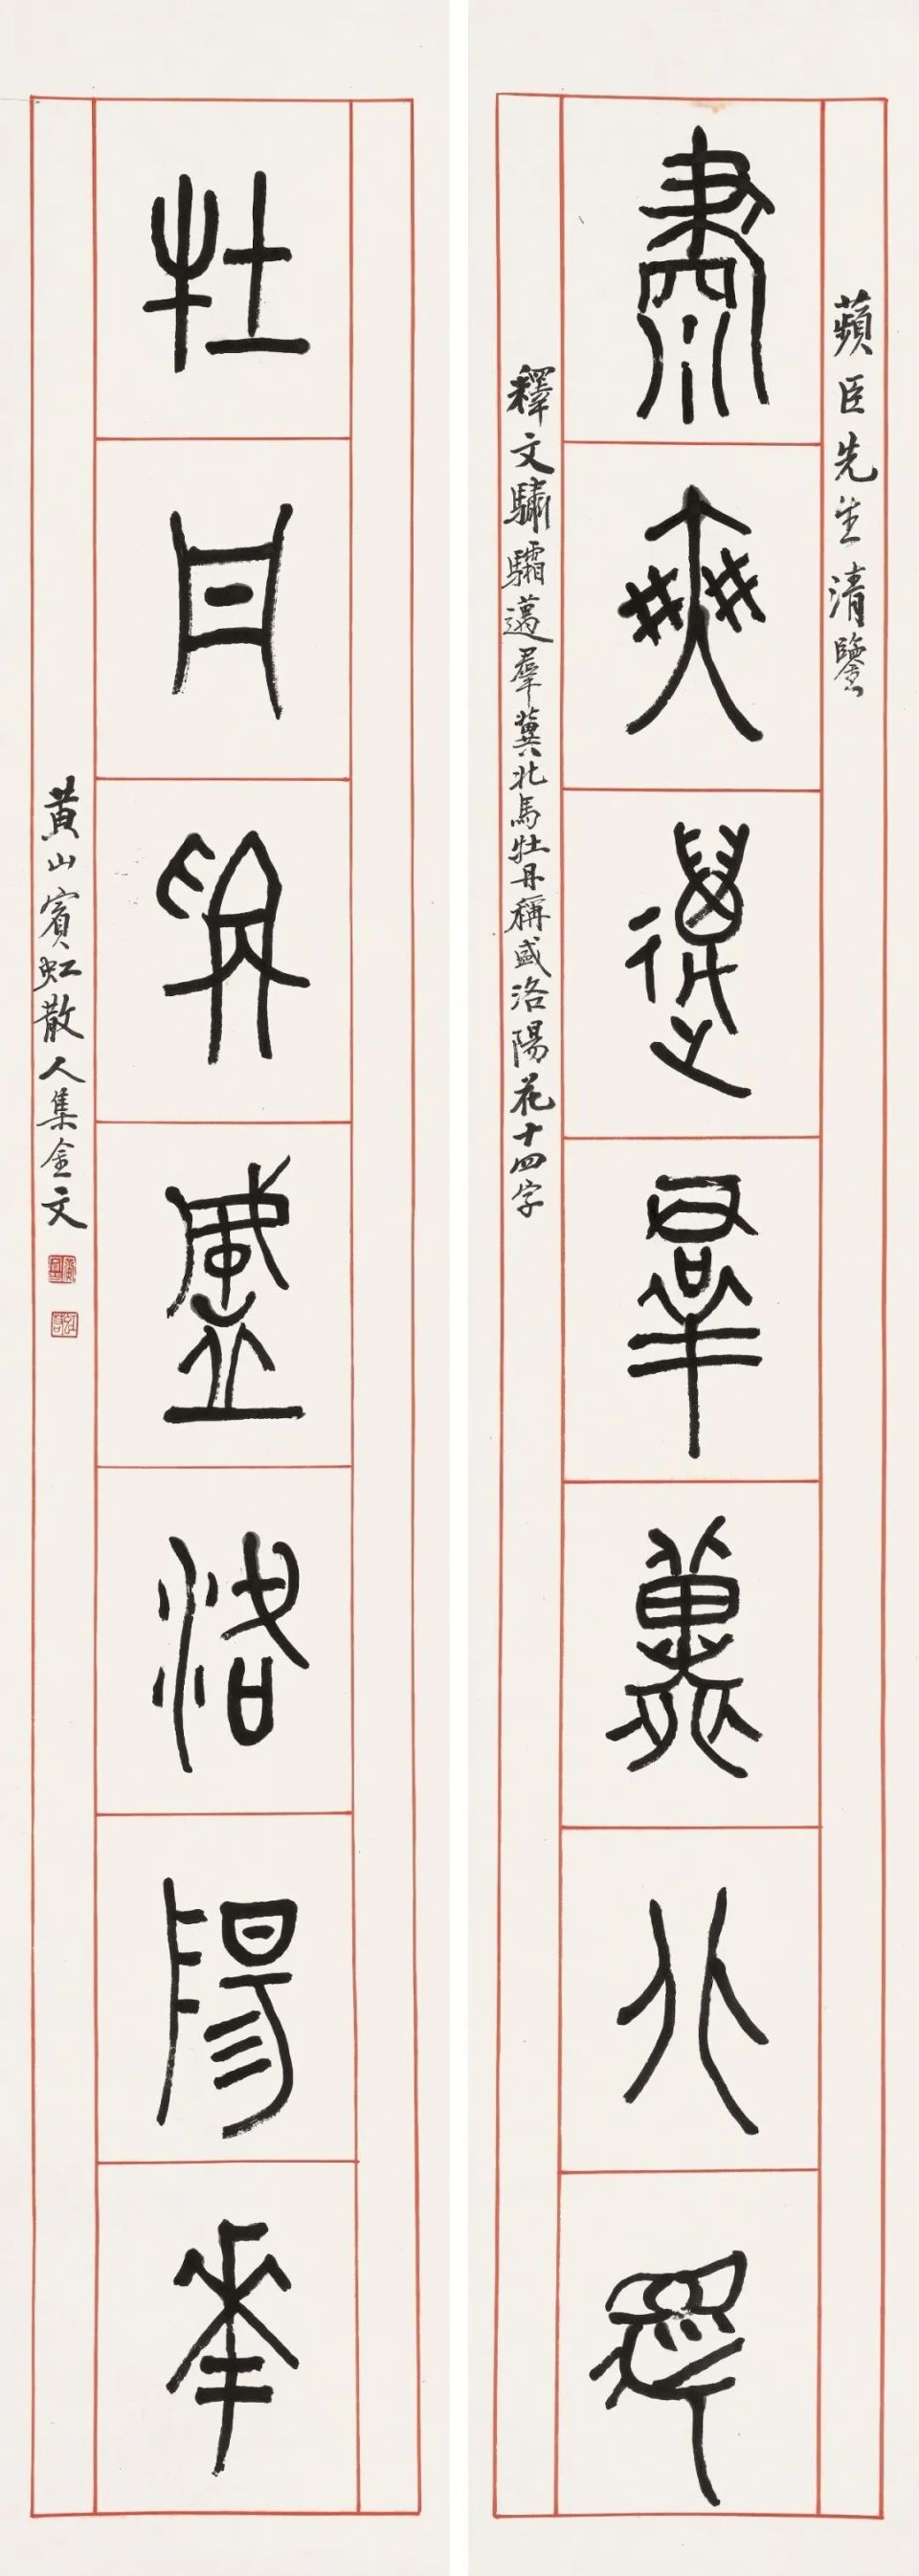 蘋臣先生清鑒
肅爽邁羣冀北馬
釋文驌驦邁羣冀北馬牡丹稱盛洛陽花十四字
牡丹爯盛洛陽華
黃山賓虹散人集金文